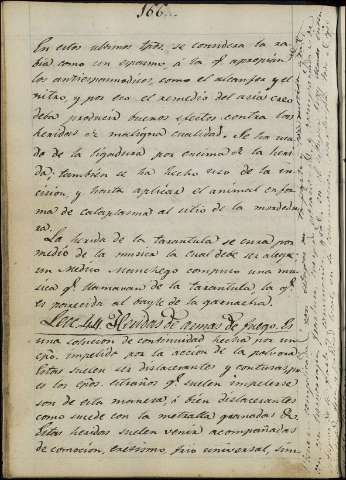 166.
En estos ultimos tpos, se considera la ra-
bia como un espasmo, á la q.e apropian
los antiespasmodicos, como el alcanfor y el
nitro, y por eso el remedio del asia creo
deba producir buenos efectos contra las
heridas de maligna cualidad. Se ha usa-
do de la ligadura por encima de la heri-
da; tambien se ha hecho uso de la in-
cision, y hasta aplicar el animal en for-
ma de cataplasma al sitio de la mordedu-
ra.
La herida de la tarantula se cura por
medio de la musica la cual debe ser alegre,
un Medico Manchego compuso una mu-
sica q.e llamavan de la tarantula la q.e
es parecida al bayle de la garnacha.
Lecc. 44 Heridas de armas de fuego. Es
una solucion de continuidad hecha por un
cpo. impelido por la accion de la polvora.
Estas suelen ser dislacerantes y contusas, p.s
los cpos. estraños q.e suelen impelerse
son de esta manera, ó bien dislacerantes
como sucede con la metralla granadas &.
Estas heridas suelen venir acompañadas
de comocion, eretismo, frio universal, sin-